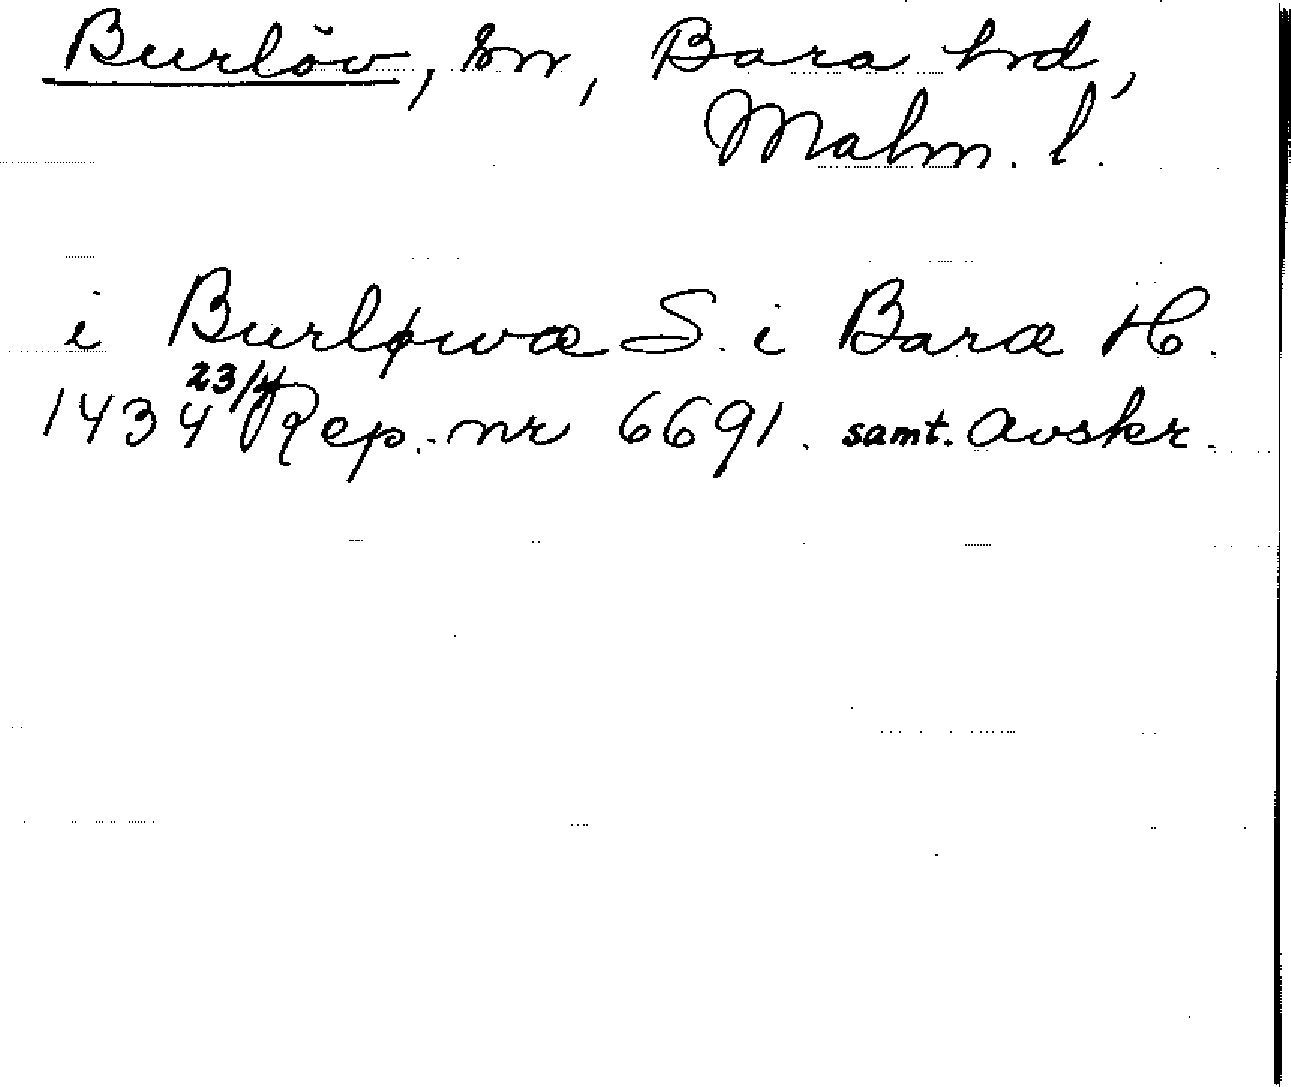 Burlöv, sn, Bara hrd,
Malm. l.
i Burløwæ S. i Baræ H.
1434 23/4 Rep. nr 6691. samt. avskr.